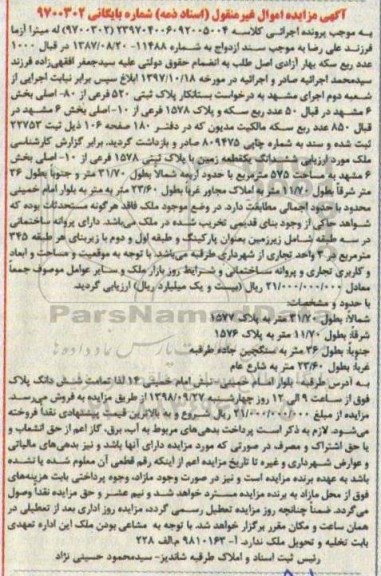 آگهی مزایده اموال غیرمنقول (اسناد ذمه) شماره بایگانی ۹۷۰۰۳۰۲
به موجب پرونده اجرائی کلاسه ۲۳۹۷۰۴۰۰۶۰۹۲۰۰۵۰۰۴ (۹۷۰۰۳۰۲) له میترا آزما
فرزند علی رضا به موجب سند ازدواج به شماره ۱۱۴۸۸-۱۳۸۷/۰۸/۲۰ در قبال ۱۰۰۰
عدد ربع سکه بهار آزادی اصل طلب به انضمام حقوق دولتی علیه سیدجعفر آققی‌زاده فرزند
سیدمحمد اجرائیه صادر و اجرائیه در مورخه ۱۳۹۷/۱۰/۱۸ ابلاغ سپس برابر نیابت اجرایی از
شعبه دوم اجرای مشهد به درخواست بستانکار پلاک ثبتی ۵۲۰ فرعی از ۸۰- اصلی بخش
۶ مشهد در قبال ۵۰ عدد ربع سکه و پلاک ۱۵۷۸ فرعی از ۱۰- اصلی بخش ۶ مشهد در
قبال ۸۵۰ عدد ربع سکه مالکیت مدیون که در دفتر ۱۸۰ صفحه ۱۰۶ ذیل ثبت ۲۲۷۵۳
ثبت شده و سند به شماره چاپی ۸۰۹۴۷۵ صادر و بازداشت گردید. برابر گزارش کارشناسی
ملک مورد ارزیابی ششدانگ یکقطعه زمین با پلاک ثبتی ۱۵۷۸ فرعی از ۱۰- اصلی بخش
۶ مشهد به مساحت ۵۷۵ مترمربع با حدود اربعه شمالا بطول ۳۱/۷۰ متر و جنوبا بطول ۳۶
متر شرقا بطول ۱۱/۷۰ متر به املاک مجاور غربا بطول ۲۳/۶۰ متر به متر به بلوار امام خمینی
محدود با حدود اجمالی مطابقت دارد. در وضع موجود ملک فاقد هرگونه مستحدثات بوده که
شواهد حاکی از وجود بنای قدیمی تخریب شده در ملک می‌باشد. دارای پروانه ساختمانی
در سه طبقه شامل زیرزمین بعنوان پارکینگ و طبقه اول و دوم با زیربنای هر طبقه ۳۴۵
مترمربع در ۳ واحد تجاری از شهرداری طرقبه می‌باشد. با توجه به موقعیت و مساحت و ابعاد
و کاربری تجاری و پروانه ساختمانی و شرایط روز بازار ملک و سایر عوامل موصوف جمعا
معادل ۲۱/۰۰۰/۰۰۰/۰۰۰ ریال (بیست و یک میلیارد ریال) ارزیابی گردید.
با حدود و مشخصات:
شمالا: بطول ۳۱/۷۰ متر به پلاک ۱۵۷۷
شرقا: بطول ۱۱/۷۰ متر به پلاک ۱۵۷۶
جنوبا: بطول ۳۶ متر به سنگچین جاده طرقبه
غربا: بطول ۲۳/۶۰ متر به شارع عام
به آدرس طرقبه- بلوار امام خمینی- نبش امام خمینی ۱۴ لذا تمامت شش دانگ پلاک
فوق از ساعت ۹ الی ۱۲ روز چهارشنبه ۱۳۹۸/۰۹/۲۷ از طریق مزایده به فروش می‌رسد.
مزایده از مبلغ ۲۱/۰۰۰/۰۰۰/۰۰۰ ریال شروع و به بالاترین قیمت پیشنهادی نقدا فروخته
می‌شود. لازم به ذکر است پرداخت بدهی‌های مربوط به آب، برق، گاز اعم از حق انشعاب و
یا حق اشتراک و مصرف در صورتی که مورد مزایده دارای آنها باشد و نیز بدهی‌های مالیاتی
و عوارض شهرداری و غیره تا تاریخ مزایده اعم از اینکه رقم قطعی آن معلوم شده یا نشده
باشد به عهده برنده مزایده است و نیز در صورت وجود مازاد، وجوه پرداختی بابت هزینه‌های
فوق از محل مازاد به برنده مزایده مسترد خواهد شد و نیم عشر و حق مزایده نقدا وصول
می‌گردد. ضمنا چنانچه روز مزایده تعطیل رسمی گردد، مزایده روز اداری بعد از تعطیلی در
همان ساعت و مکان مقرر برگزار خواهد شد. با توجه به مشاعی بودن ملک این اداره تعهدی
بابت تخلیه و تحویل ملک ندارد. آ- ۹۸۱۰۱۶۳ م.الف ۲۲۸
رئیس ثبت اسناد و املاک طرقبه شاندیز- سیدمحمود حسینی نژاد